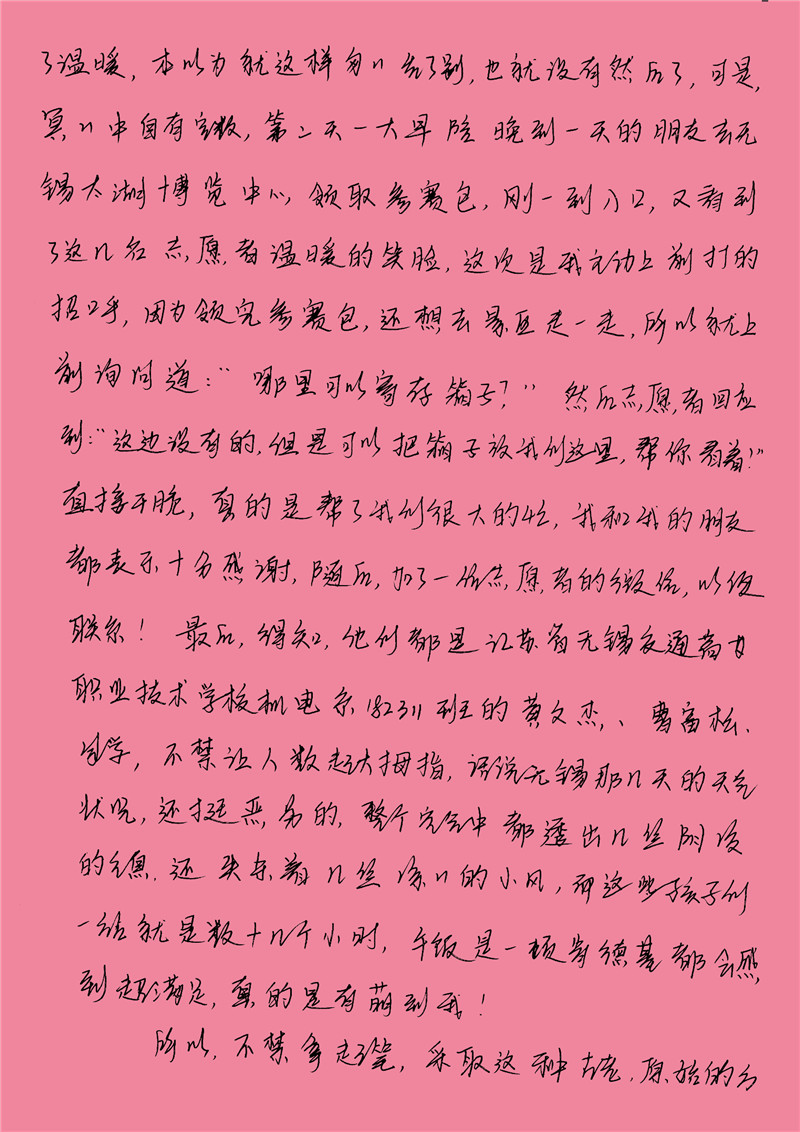 了温暖，本以为就这样匆〃告了别，也就没有然后了，可是，
冥〃中自有定数，第二天一大早陪晚到一天的朋友去无
锡太湖博览中心领取参赛包，刚一到入口，又看到
了这几名志愿者温暖的笑脸，这次是我主动上前打的
招呼，因为领完参赛包，还想去景区走一走，所以就上
前询问道：“哪里可以寄存箱子？”然后志愿者回应
到：“这边没有的，但是可以把箱子放我们这里，帮你看着！”
直接干脆，真的是帮了我们很大的忙，我和我的朋友
都表示十分感谢，随后，加了一位志愿者的微信，以便
联系！最后，得知，他们都是江苏省无锡交通高等
职业技术学校机电系182311班的黄文杰、曹富松、
同学，不禁让人数起大拇指，话说无锡那几天的天气
状况，还挺恶劣的，整个完空中都透出几丝阴冷
的气息，还夹杂着几丝凉〃的小风，而这些孩子们
一站就是数十几个小时，午饭是一顿肯德基都会感
到超满足，真的是有萌到我！
所以，不禁拿起笔，采取这种古老、原始的方